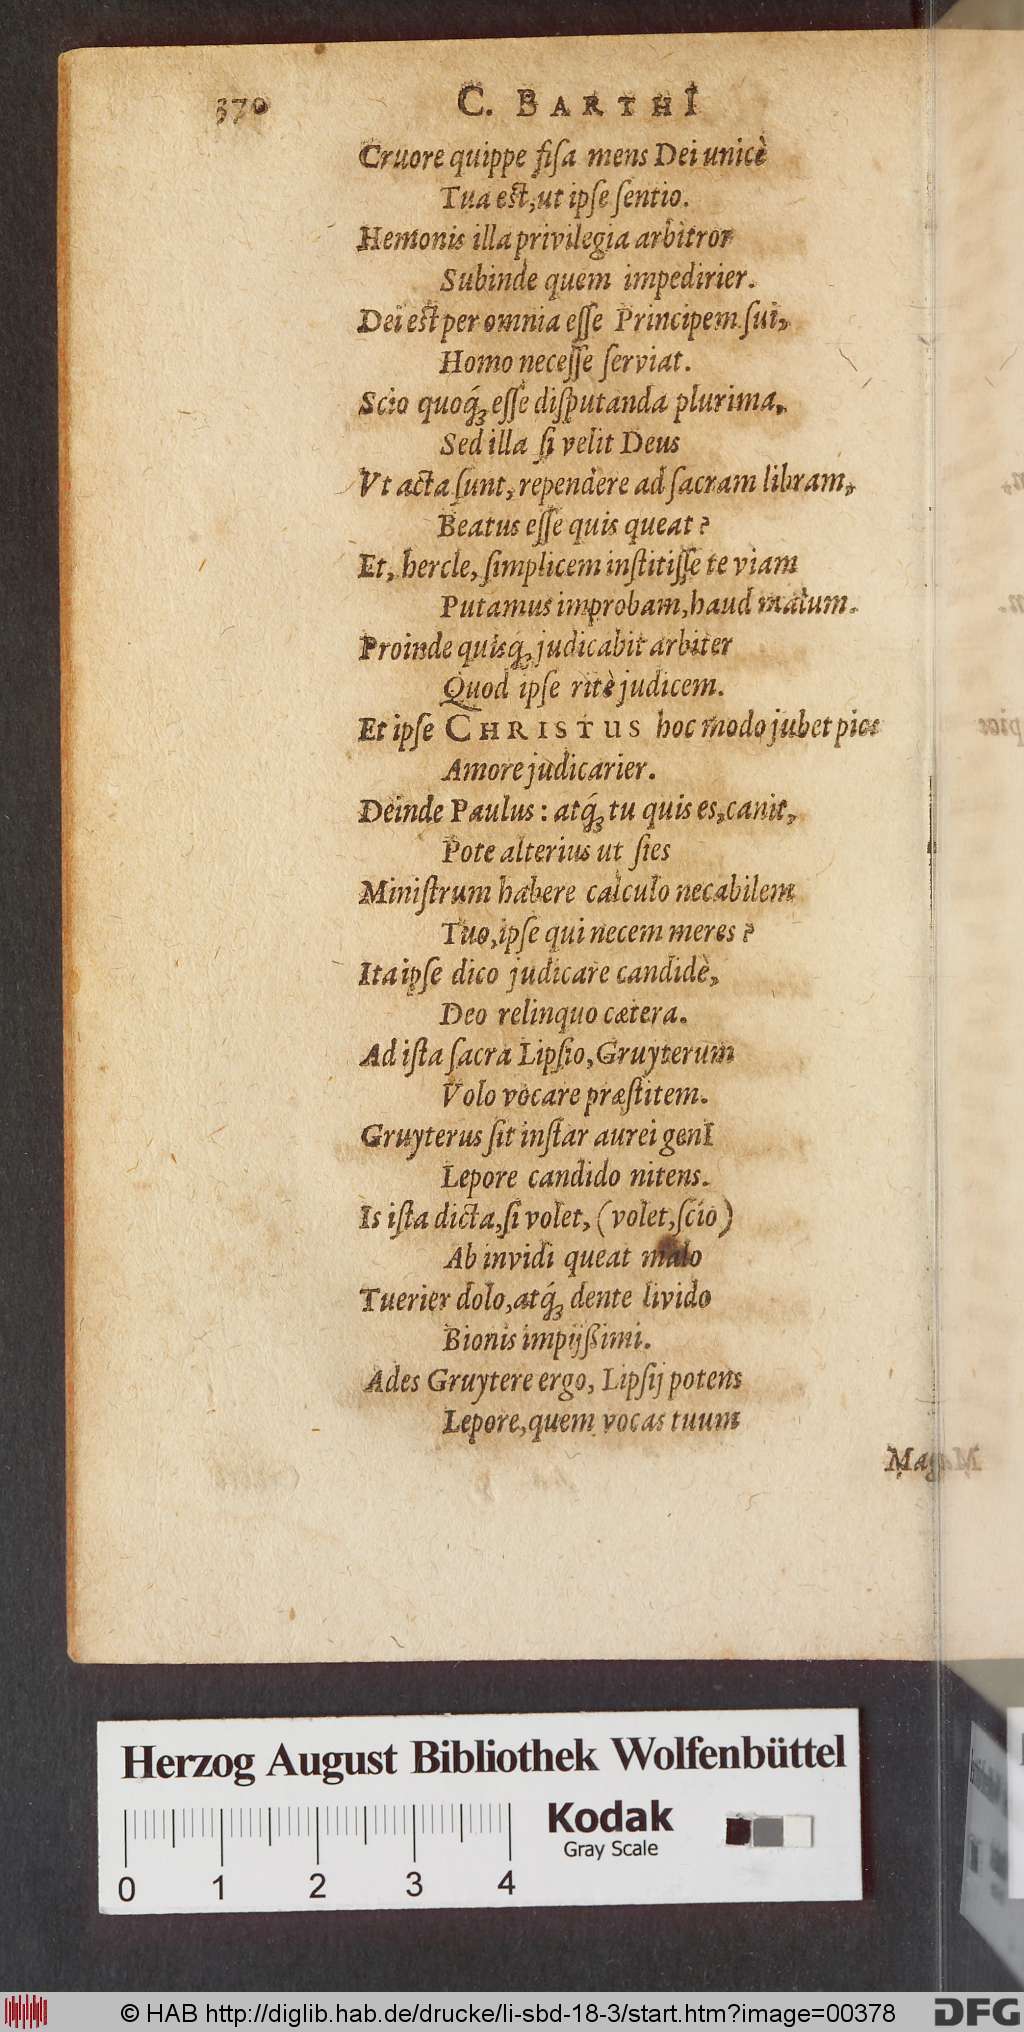 370 C. BARTHI
Cruore quippe fiſa mens Dei unicè
Tua eſt, ut ipſe ſentio.
Hemonis illa privilegia arbitror
Subinde quem impedirier.
Dei eſt per omnia eſſe Principem ſui,
Homo neceſſe ſerviat.
Scio quoq́; eſſe diſputanda plurima,
Sed illa ſi velit Deus
Vt acta ſunt, rependere ad ſacram libram,
Beatus eſſe quis queat?
Et, hercle, ſimplicem inſtitiſſe te viam
Putamus improbam, haud malum.
Proinde quisq́; judicabit arbiter
Quod ipſe ritè judicem.
Et ipſe CHRISTUS hoc modo jubet pios
Amore judicarier.
Deinde Paulus: atq́; tu quis es, canit,
Pote alterius ut ſies
Miniſtrum habere calculo necabilem
Tuo, ipſe qui necem meres?
Ita ipſe dico judicare candidè,
Deo relinquo cætera.
Ad iſta ſacra Lipſio, Gruyterum
Volo vocare præſtitem.
Gruyterus ſit inſtar aurei genI
Lepore candido nitens.
Is iſta dicta, ſi volet, (volet, ſcio)
Ab invidi queat malo
Tuerier dolo, atq́; dente livido
Bionis impijßimi.
Ades Gruytere ergo, Lipſij potens
Lepore, quem vocas tuum
Herzog August Bibliothek Wolfenbüttel
Kodak
Gray Scale
0 1 2 3 4
© HAB http://diglib.hab.de/drucke/li-sbd-18-3/start.htm?image=00378 DFG